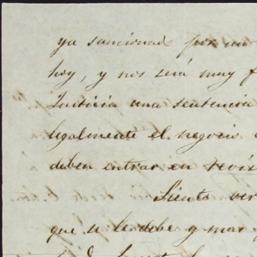 ya sancionad por mi
hoy, y nos será muy f
Justicia una sentencia
legalmente el negocio
deben entrar en revis
Siento ver
que se le debe y mas